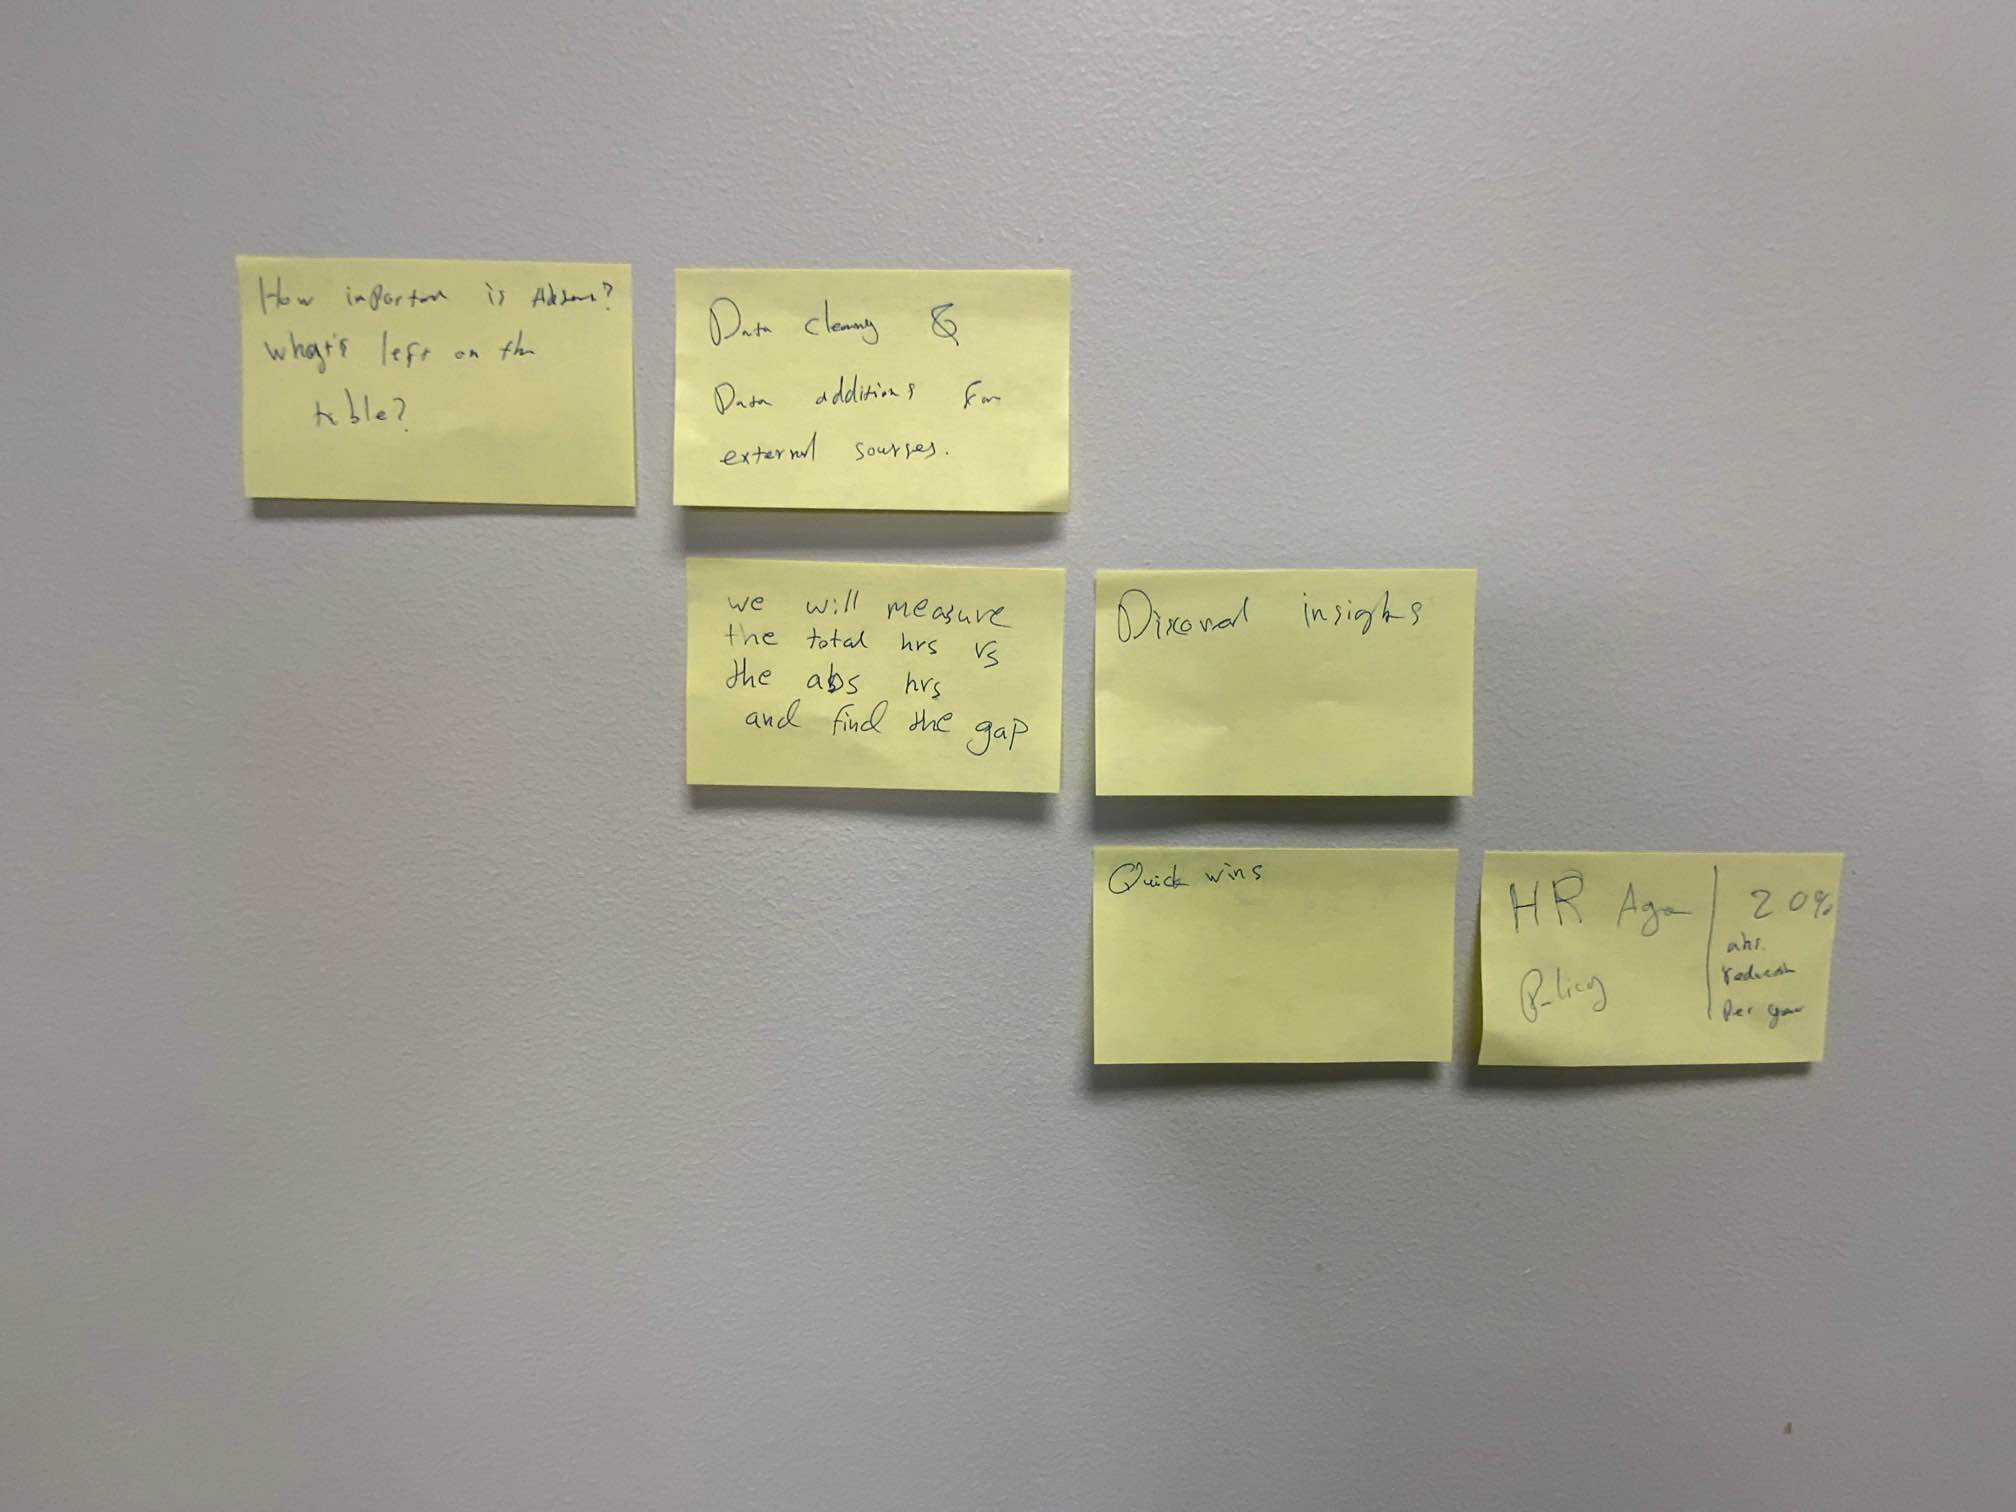 How important is
What's left on the
table?
Data cleaning &
Data additions from
external sourses.
we will measure
the total hrs vs
the abs hrs
and find the gap
Discoverd insights
Quick wins
HR
Policy
20%
abs.
reduction
per year